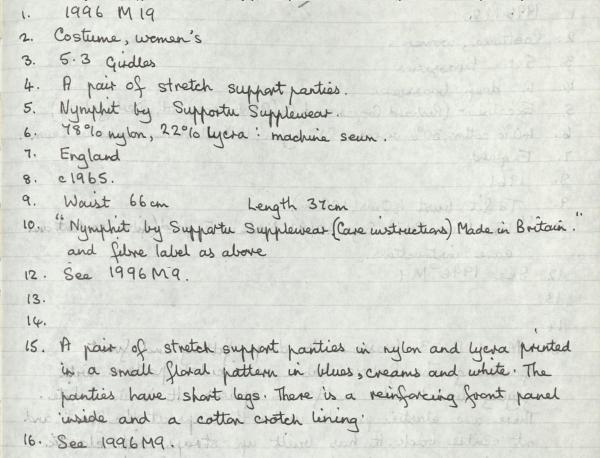 1. 1996 M 19
2. Costume, women's
3. 5.3 Girdles
4. A pair of stretch support panties.
5. Nymphit by Supportu Supplewear.
6. 78% nylon, 22% lycra : machine sewn.
7. England
8. c1965.
9. Waist 66cm Length 37cm
10. "Nymphit by Supportu Supplewear (Care instructions) Made in Britain."
and fibre label as above
12. See 1996M9.
13.
14.
15. A pair of stretch support panties in nylon and lycra printed
in a small floral pattern in blues, creams and white. The
panties have short legs. There is a reinforcing front panel
inside and a cotton crotch lining.
16. See 1996M9.